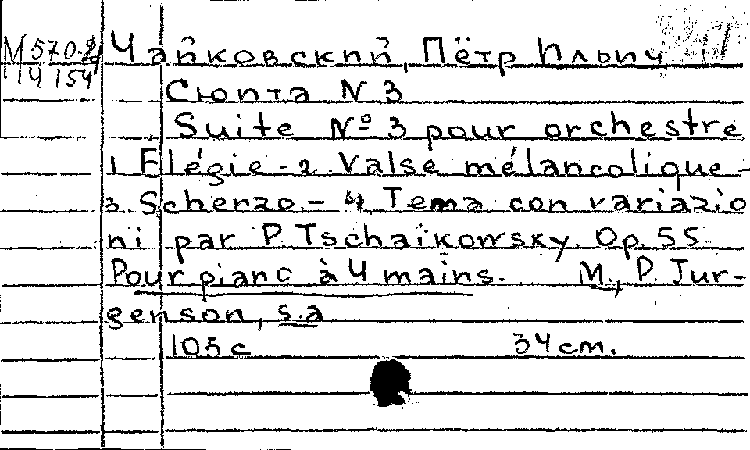 М570.2 Чайковский, Пётр Ильич
Ч 154
Сюита N 3
Suite № 3 pour orchestre
1 Elégie - 2 Valse mélancolique -
3 Scherzo - 4 Tema con variazio
ni par P. Tschaïkowsky. Op. 55
Pour piano à 4 mains. М., P. Jur-
genson, s.a
105 с 34 cm.